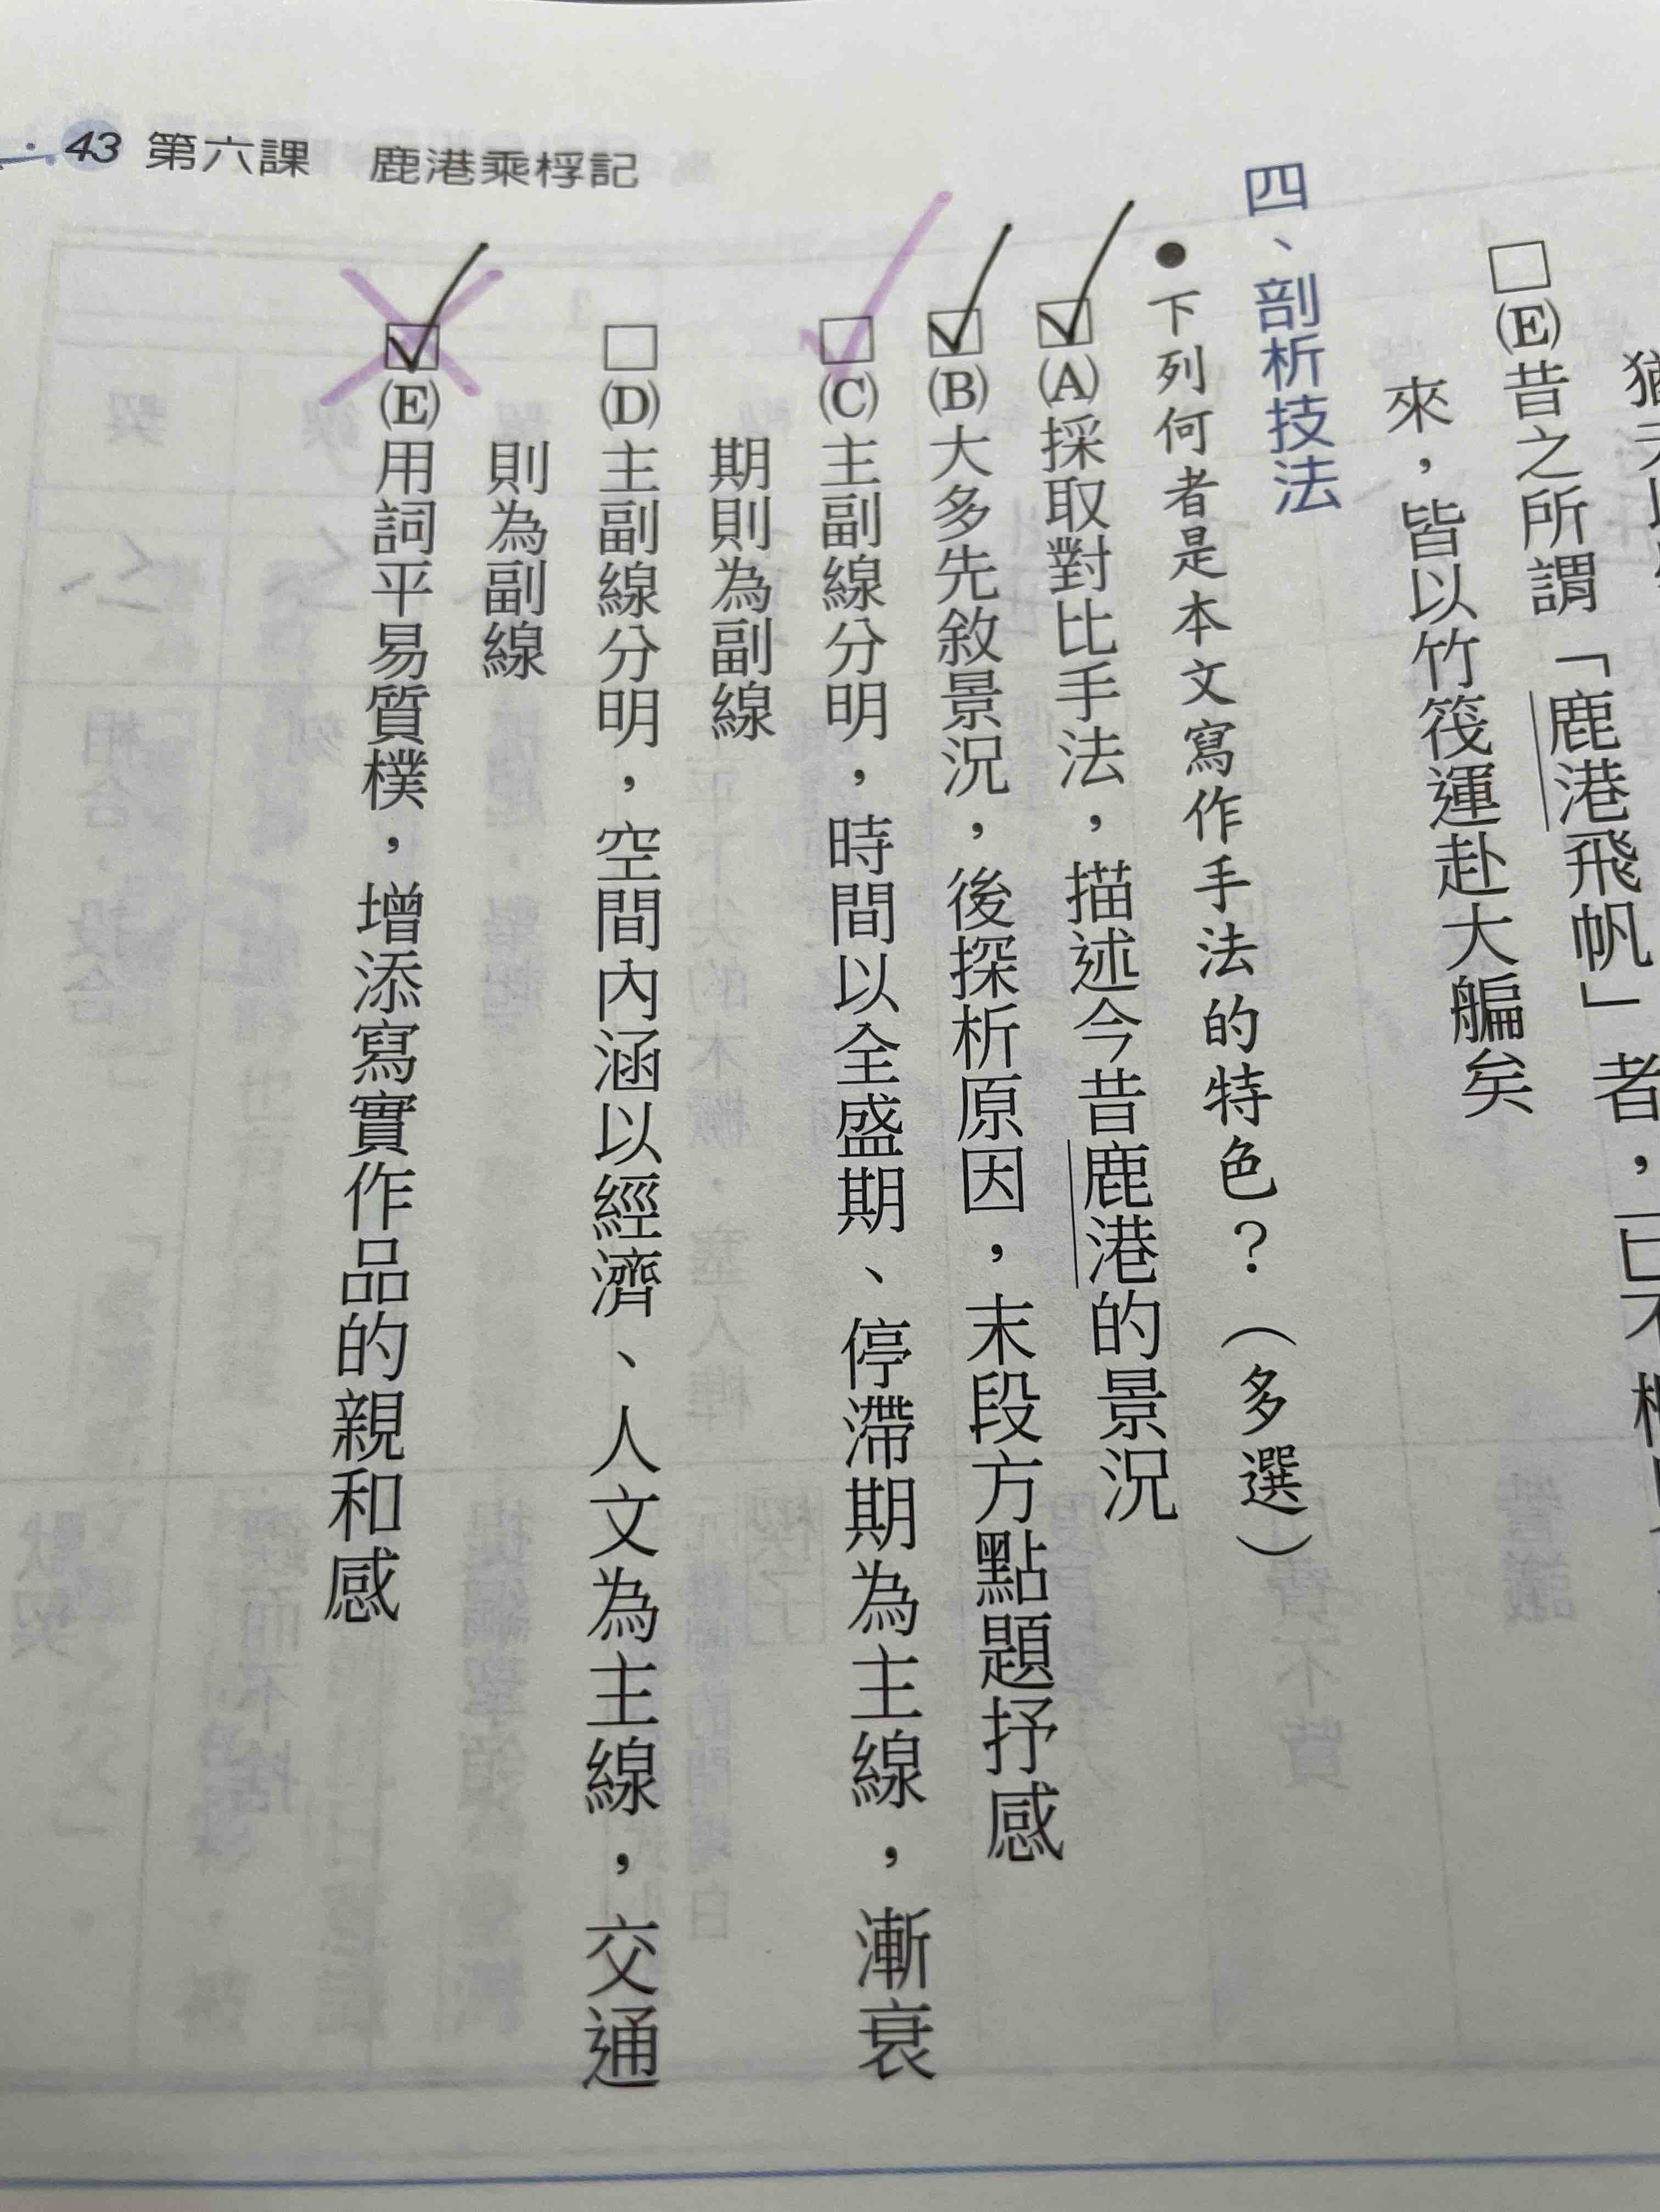 43 第六課 鹿港乘桴記
□(E)昔之所謂「鹿港飛帆」者，已不
來，皆以竹筏運赴大艑矣
四、剖析技法
●下列何者是本文寫作手法的特色？（多選）
☑(A)採取對比手法，描述今昔鹿港的景況
☑(B)大多先敘景況，後探析原因，末段方點題抒感
□(C)主副線分明，時間以全盛期、停滯期為主線，漸衰
期則為副線
□(D)主副線分明，空間內涵以經濟、人文為主線，交通
則為副線
☑(E)用詞平易質樸，增添寫實作品的親和感